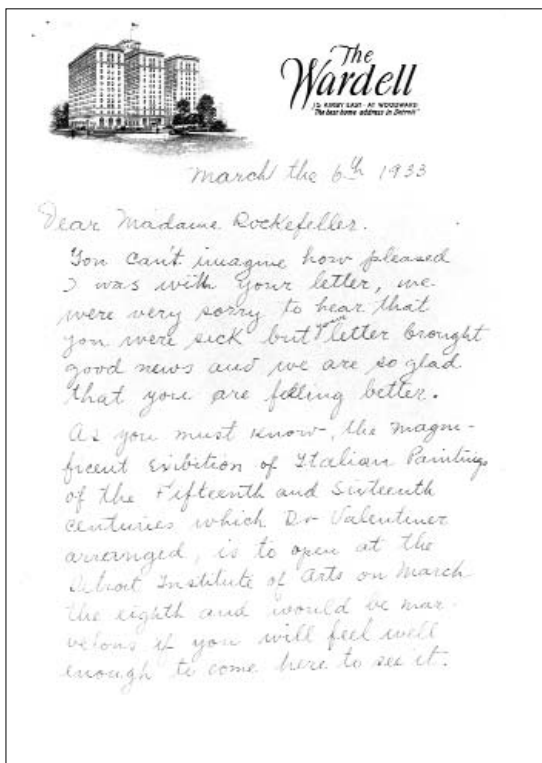 The
Wardell
15 KIRBY EAST - AT WOODWARD
"The best home address in Detroit"
March the 6th 1933
Dear Madame Rockefeller.
You can't imagine how pleased
I was with your letter, we
were very sorry to hear that
you were sick but your letter brought
good news and we are so glad
that you are feeling better.
As you must know, the magni-
ficent Exibition of Italian Paintings
of the Fifteenth and Sixteenth
centuries which Dr Valentiner
arranged, is to open at the
Detroit Institute of Arts on March
the eighth and would be mar-
velous if you will feel well
enough to come here to see it.